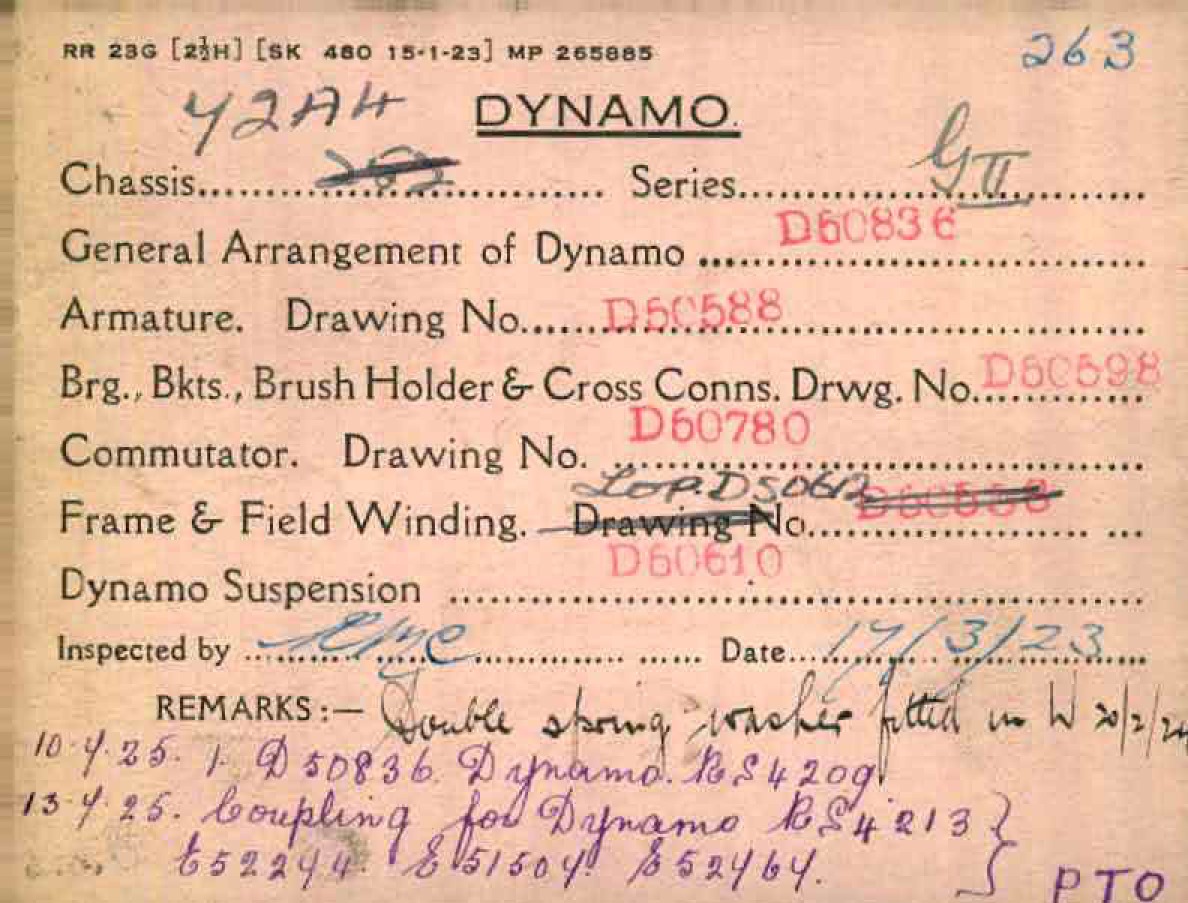 RR 23G [2½H] [SK 480 15-1-23] MP 265885 263
42A4 DYNAMO.
Chassis.......... Series.......... G II
General Arrangement of Dynamo .......... D50836
Armature. Drawing No.......... D50588
Brg., Bkts., Brush Holder & Cross Conns. Drwg. No.......... D50598
Commutator. Drawing No. .......... D50780
Frame & Field Winding. Drawing No..........
Dynamo Suspension .......... D50610
Inspected by .......... Date.......... 17/3/23
REMARKS:— Double spring washer fitted in W 20/2/24
10.4.25. 1. D50836. Dynamo. RS4209
13.4.25. Coupling for Dynamo RS4213 }
E52244. E51504. E52464.
PTO